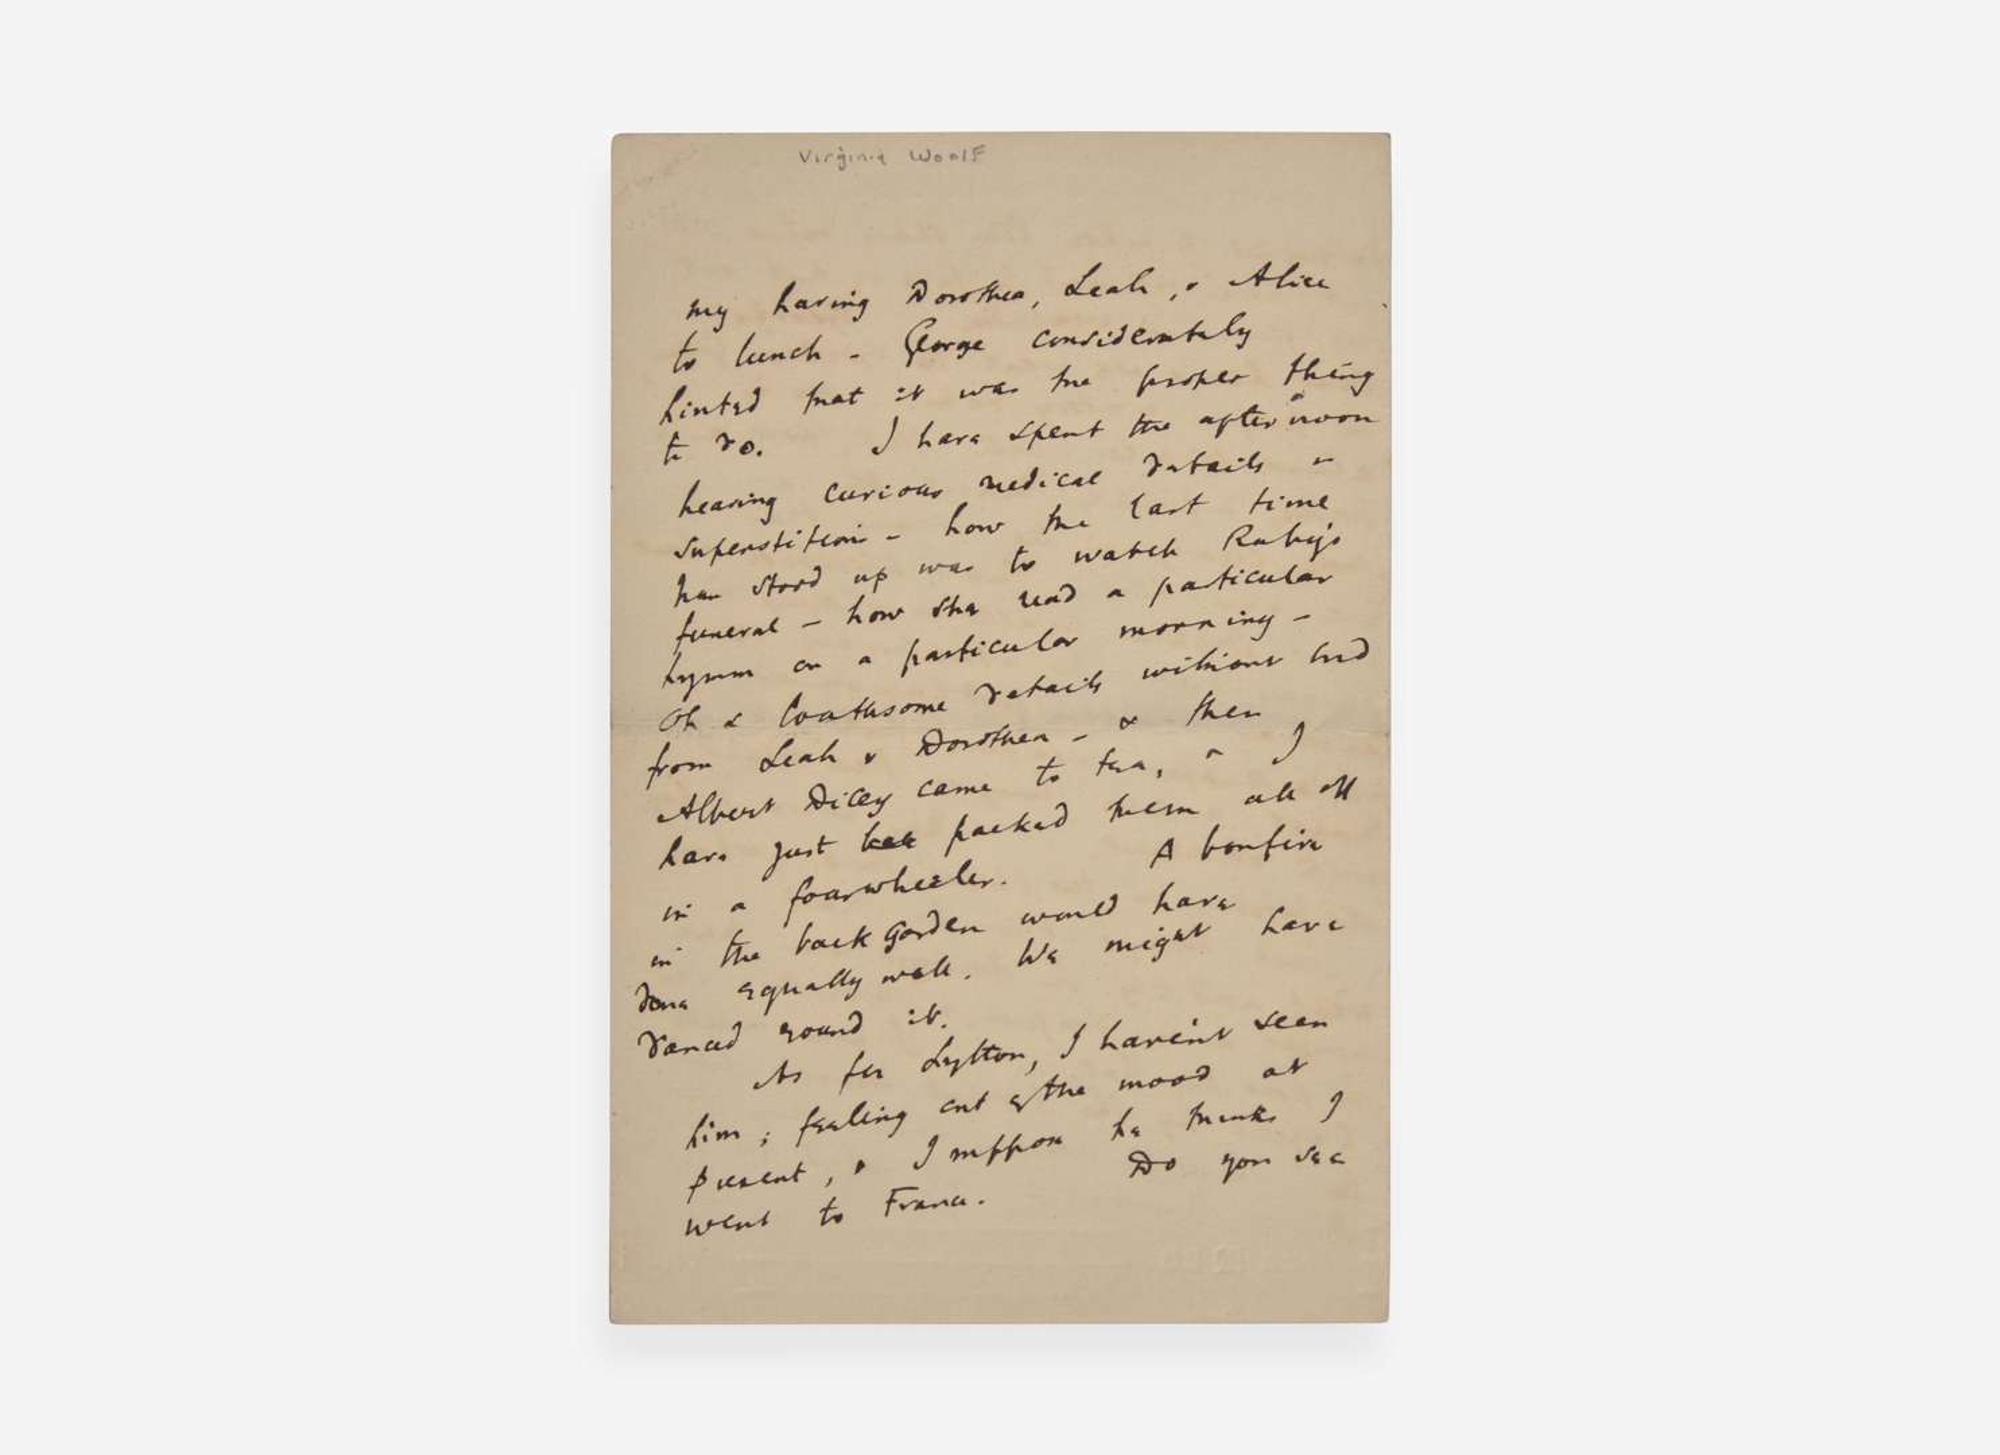 Virginia Woolf
my having Dorothea, Leah, & Alice
to lunch - George considerately
hinted that it was the proper thing
to do. I have spent the afternoon
hearing curious medical details &
superstitions - how the last time
stood up was to watch Ruby's
funeral - how she read a particular
hymn on a particular morning -
Oh & loathsome details without end
from Leah & Dorothea - & then
Albert Dicey came to tea, & I
have just packed them all off
in a fourwheeler. A bonfire
in the back garden would have
done equally well. We might have
danced round it.
As for Lytton, I haven't seen
him; feeling out of the mood at
present, & I suppose he thinks I
went to France. Do you see